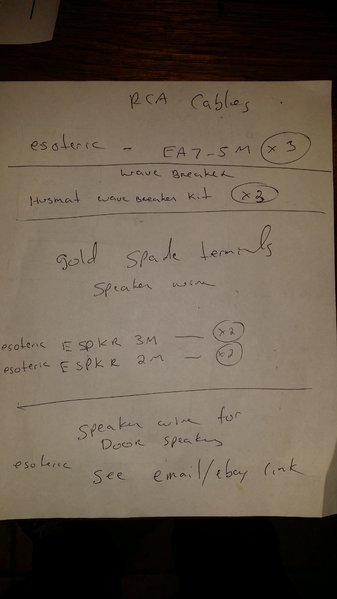 RCA Cables
esoteric - EA7-5M x3
Wave Breaker
Husmat wave Breaker kit x3
gold spade terminals
Speaker wire
esoteric ESPKR 3M — x2
esoteric ESPKR 2M — x2
Speaker wire for
Door speakers
esoteric See email/ebay link